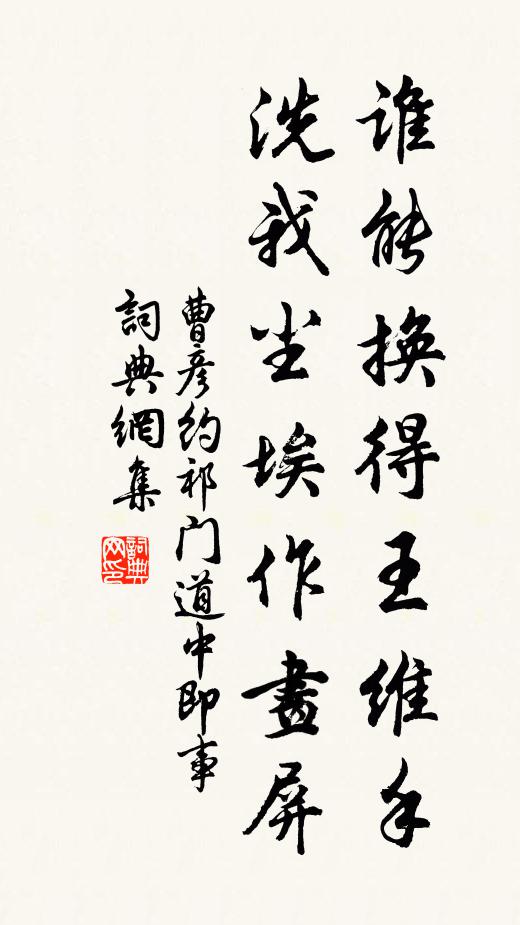 誰能換得王維手
洗我尘埃作畫屏
曹彦約祁门道中即事
詞典網集
詞典网印